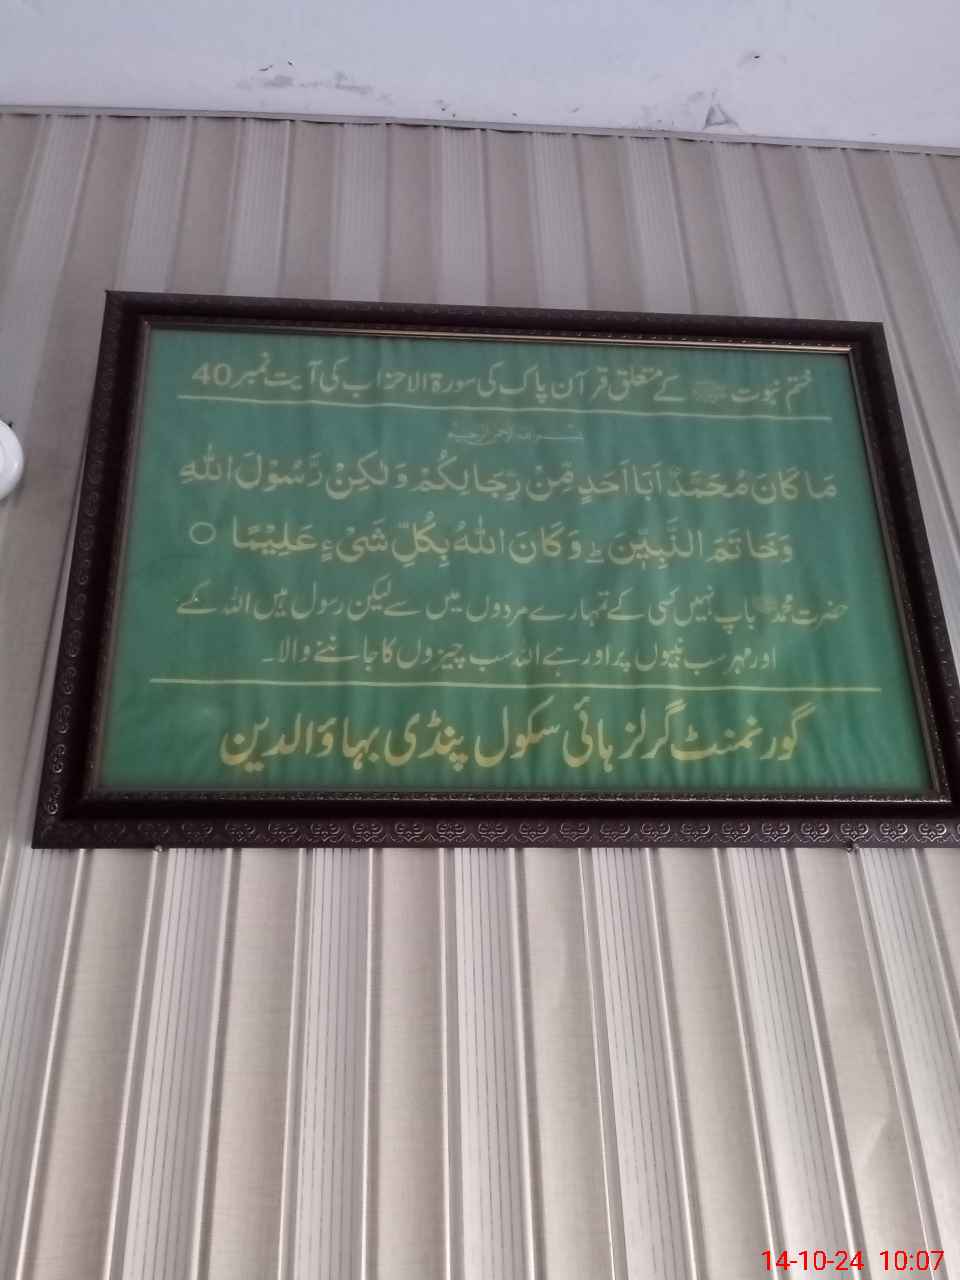 ختم نبوت ﷺ کے متعلق قرآن پاک کی سورۃ الاحزاب کی آیت نمبر 40
بسم اللہ الرحمن الرحیم
مَا كَانَ مُحَمَّدٌ اَبَآ اَحَدٍ مِّنْ رِّجَالِكُمْ وَلٰكِنْ رَّسُوْلَ اللّٰهِ
وَخَاتَمَ النَّبِيّٖنَ ؕ وَكَانَ اللّٰهُ بِكُلِّ شَیْءٍ عَلِيْمًا ○
حضرت محمدﷺ باپ نہیں کسی کے تمہارے مردوں میں سے لیکن رسول ہیں اللہ کے
اور مہر سب نبیوں پر اور ہے اللہ سب چیزوں کا جاننے والا۔
گورنمنٹ گرلز ہائی سکول پنڈی بہاؤالدین
14-10-24 10:07